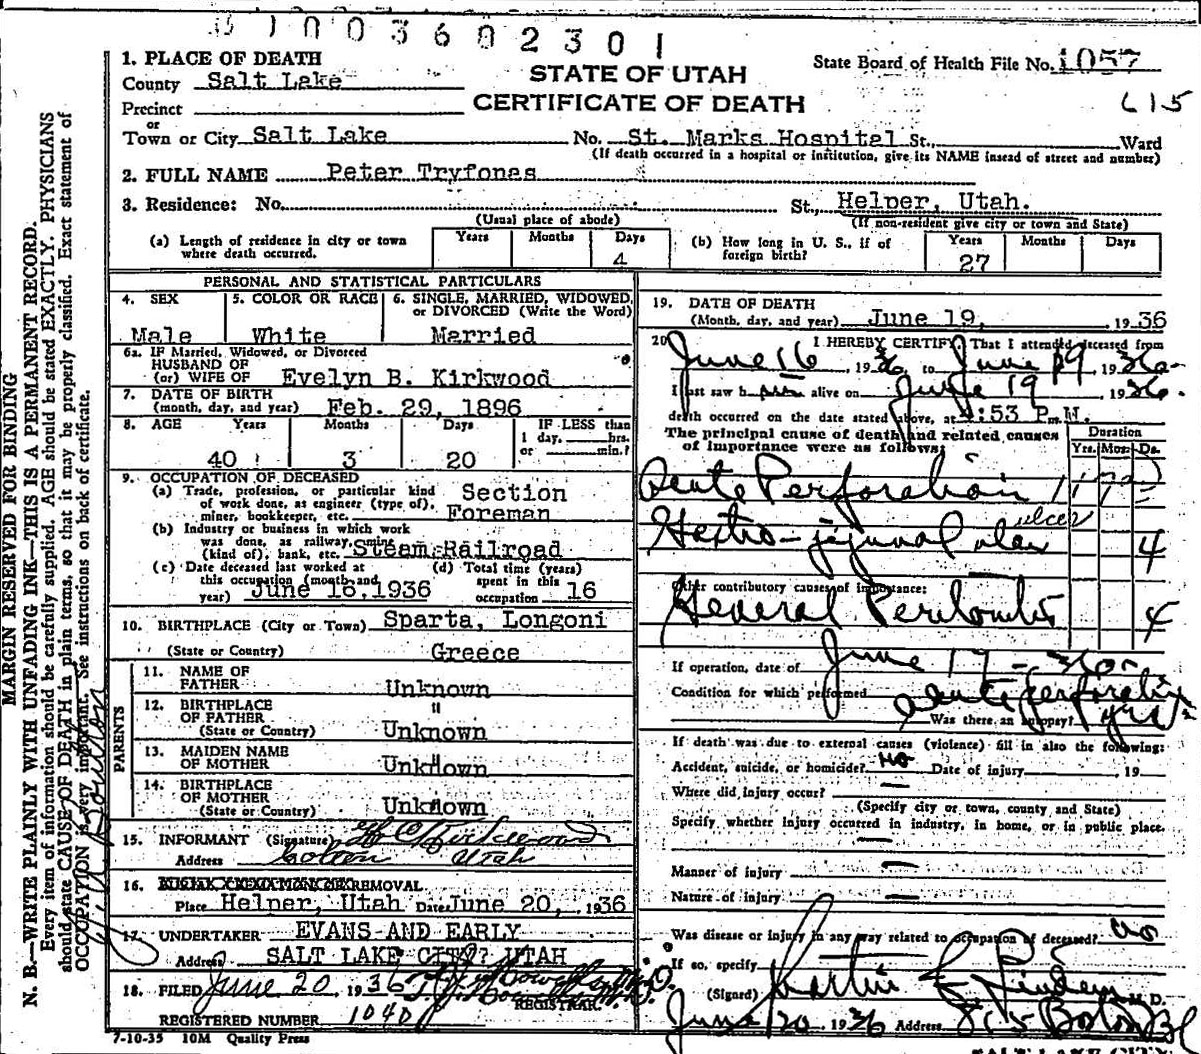 01003602301
1. PLACE OF DEATH
County Salt Lake
Precinct
or
Town or City Salt Lake
STATE OF UTAH
CERTIFICATE OF DEATH
State Board of Health File No. 1057
615
No. St. Marks Hospital St., Ward
(If death occurred in a hospital or institution, give its NAME instead of street and number)
2. FULL NAME Peter Tryfonas
3. Residence: No. St., Helper, Utah.
(Usual place of abode) (If non-resident give city or town and State)
(a) Length of residence in city or town where death occurred. Years Months Days 4
(b) How long in U. S., if of foreign birth? Years 27 Months Days
PERSONAL AND STATISTICAL PARTICULARS
4. SEX Male
5. COLOR OR RACE White
6. SINGLE, MARRIED, WIDOWED, or DIVORCED (Write the Word) Married
6a. IF Married, Widowed, or Divorced
HUSBAND OF
(or) WIFE OF Evelyn B. Kirkwood
7. DATE OF BIRTH
(month, day, and year) Feb. 29, 1896
8. AGE Years 40 Months 3 Days 20 IF LESS than 1 day, hrs. or min.?
9. OCCUPATION OF DECEASED
(a) Trade, profession, or particular kind of work done, as engineer (type of), miner, bookkeeper, etc. Section Foreman
(b) Industry or business in which work was done, as railway, mine (kind of), bank, etc. Steam Railroad
(c) Date deceased last worked at this occupation (month and year) June 16, 1936
(d) Total time (years) spent in this occupation 16
10. BIRTHPLACE (City or Town) Sparta, Longoni
(State or Country) Greece
PARENTS
11. NAME OF FATHER Unknown
12. BIRTHPLACE OF FATHER (State or Country) " Unknown
13. MAIDEN NAME OF MOTHER Unknown
14. BIRTHPLACE OF MOTHER (State or Country) Unknown
15. INFORMANT (Signature) Kirkwood
Address Colton Utah
16. REMOVAL
Place Helper, Utah Date June 20, 1936
17. UNDERTAKER EVANS AND EARLY
Address SALT LAKE CITY, UTAH
18. FILED June 20 1936
REGISTRAR
REGISTERED NUMBER 1040
7-10-35 10M Quality Press
19. DATE OF DEATH
(Month, day, and year) June 19, 1936
20. I HEREBY CERTIFY That I attended deceased from
June 16, 1936 to June 19, 1936
I last saw him alive on June 19 1936.
death occurred on the date stated above, at :53 P.M.
The principal cause of death and related causes of importance were as follows:
Duration
Yrs. Mos. Ds.
Acute Perforation
Gastro-jejunal ulcer ulcer 4
Other contributory causes of importance:
General Peritonitis 4
If operation, date of June 17-36
Condition for which performed Acute perforation
Was there an autopsy? yes
If death was due to external causes (violence) fill in also the following:
Accident, suicide, or homicide? no Date of injury 19
Where did injury occur? —
(Specify city or town, county and State)
Specify whether injury occurred in industry, in home, or in public place.
—
Manner of injury —
Nature of injury —
Was disease or injury in any way related to occupation of deceased? no
If so, specify
(Signed) Martin C. Lindem M. D.
June 20 1936 Address 815 Boston Bl
SALT LAKE CITY
MARGIN RESERVED FOR BINDING
N. B.—WRITE PLAINLY WITH UNFADING INK—THIS IS A PERMANENT RECORD.
Every item of information should be carefully supplied. AGE should be stated EXACTLY. PHYSICIANS
should state CAUSE OF DEATH in plain terms, so that it may be properly classified. Exact statement of
OCCUPATION is very important. See instructions on back of certificate.